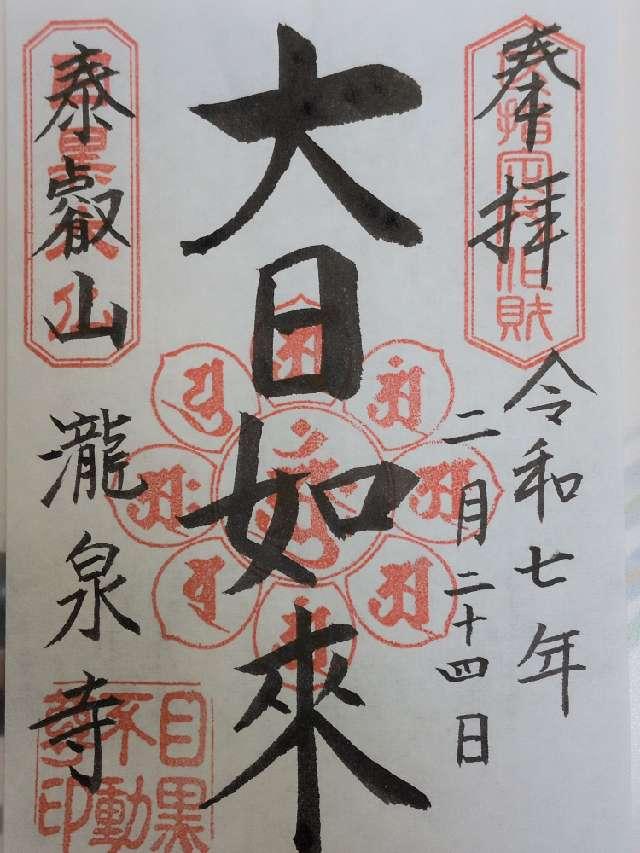 奉拝
令和七年
二月二十四日
大日如來
泰叡山
瀧泉寺
目黒
不動
尊印